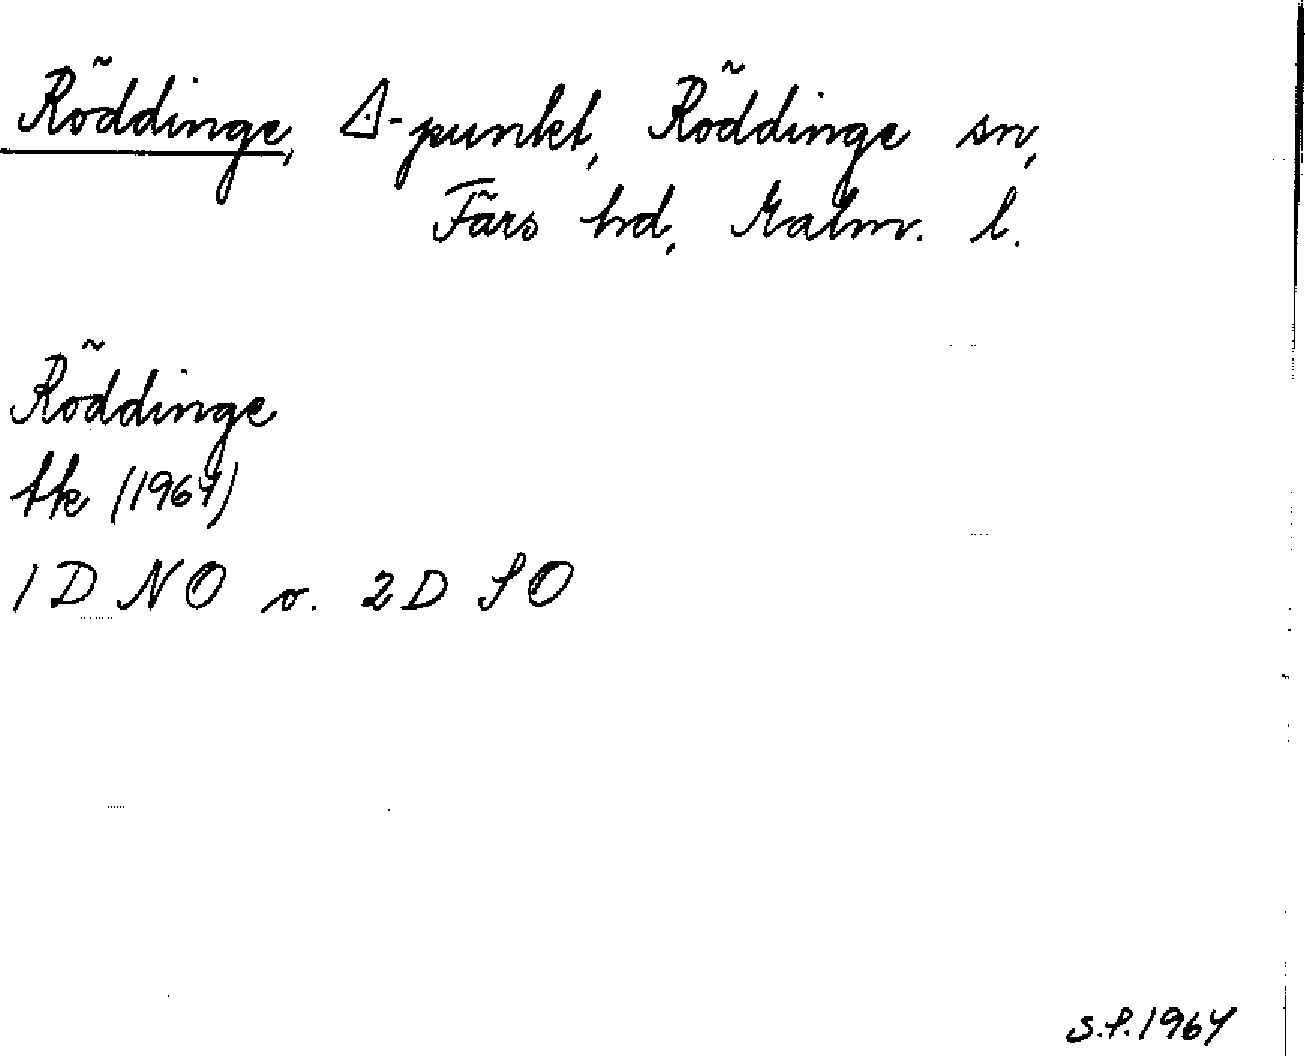 Röddinge, ∆-punkt, Röddinge sn,
Färs hd, Malm. l.
Röddinge
tk (1964)
1D NO o. 2D SO
S.P. 1964